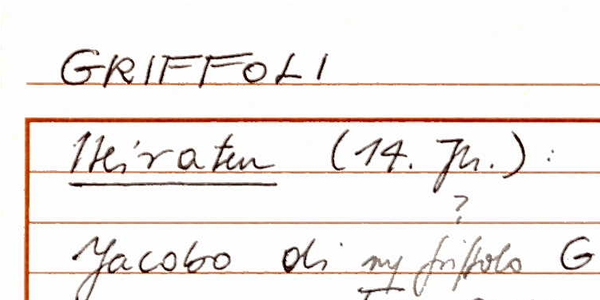 GRIFFOLI
Heiraten (14. Jh.):
?
Jacobo di ny friffolo G